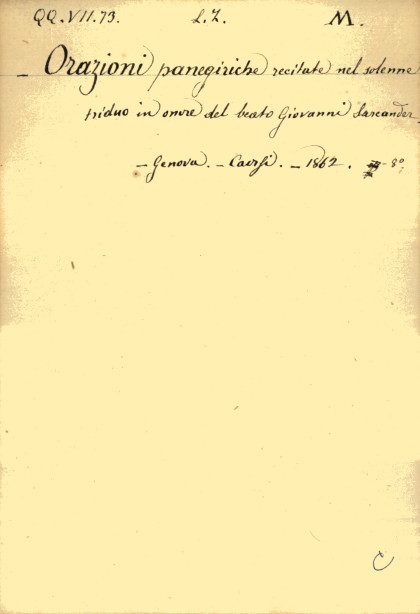 QQ.VII.73. L.Z. M.
_ Orazioni panegiriche recitate nel solenne
triduo in onore del beato Giovanni Sarcander_
_ Genova. _ Caorsi. _ 1862. - 8°;
C